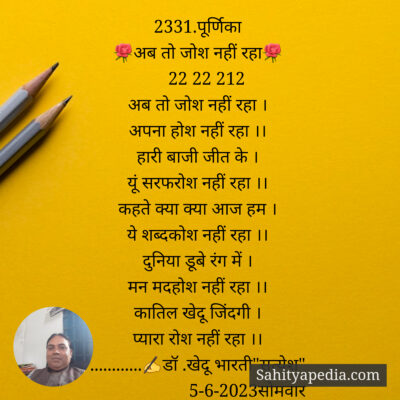 2331.पूर्णिका
🌹अब तो जोश नहीं रहा🌹
22 22 212
अब तो जोश नहीं रहा ।
अपना होश नहीं रहा ।।
हारी बाजी जीत के ।
यूं सरफरोश नहीं रहा ।।
कहते क्या क्या आज हम ।
ये शब्दकोश नहीं रहा ।।
दुनिया डूबे रंग में ।
मन मदहोश नहीं रहा ।।
कातिल खेदू जिंदगी ।
प्यारा रोश नहीं रहा ।।
............✍डॉ .खेदू भारती
5-6-2023सोमवार
Sahityapedia.com